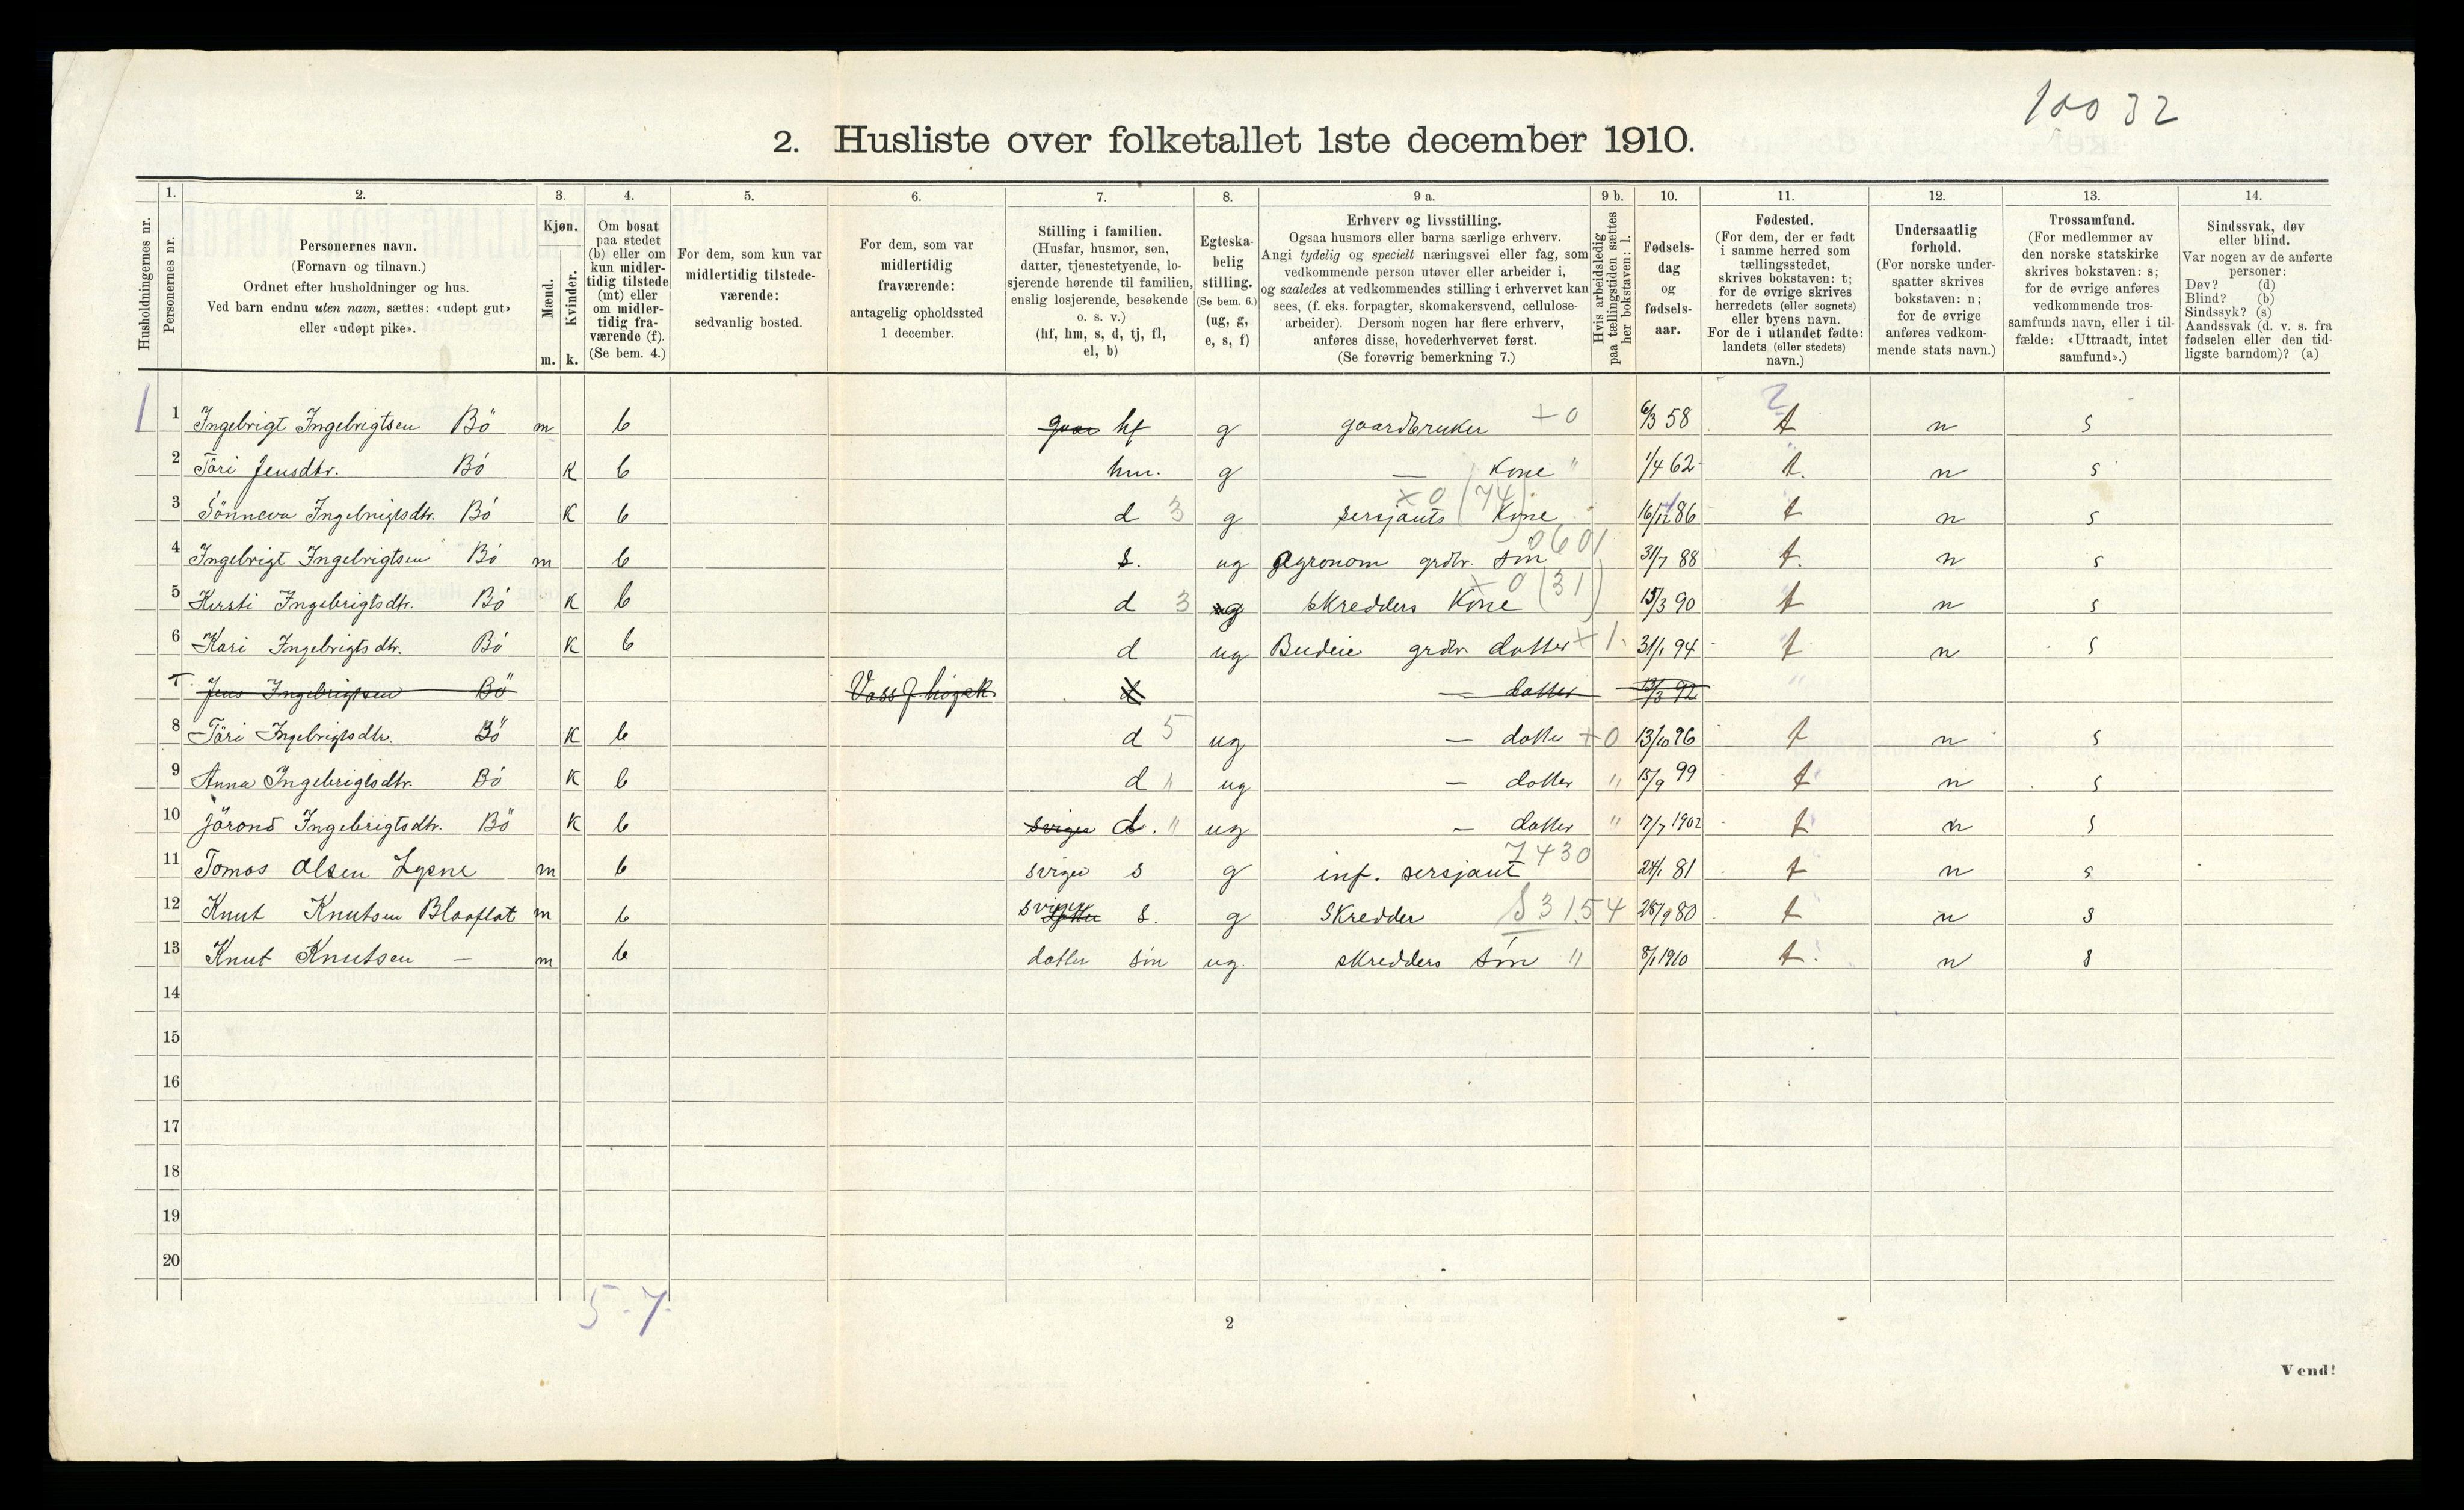 10032
2. Husliste over folketallet 1ste december 1910.
Husholdningernes nr.
1.
Personernes nr.
2.
Personernes navn.
(Fornavn og tilnavn.)
Ordnet efter husholdninger og hus.
Ved barn endnu uten navn, sættes: «udøpt gut»
eller «udøpt pike».
3.
Kjøn.
Mænd.
m.
Kvinder.
k.
4.
Om bosat
paa stedet
(b) eller om
kun midler-
tidig tilstede
(mt) eller
om midler-
tidig fra-
værende (f).
(Se bem. 4.)
5.
For dem, som kun var
midlertidig tilstede-
værende:
sedvanlig bosted.
6.
For dem, som var
midlertidig
fraværende:
antagelig opholdssted
1 december.
7.
Stilling i familien.
(Husfar, husmor, søn,
datter, tjenestetyende, lo-
sjerende hørende til familien,
enslig losjerende, besøkende
o. s. v.)
(hf, hm, s, d, tj, fl,
el, b)
8.
Egteska-
belig
stilling.
(Se bem. 6.)
(ug, g,
e, s, f)
9 a.
Erhverv og livsstilling.
Ogsaa husmors eller barns særlige erhverv.
Angi tydelig og specielt næringsvei eller fag, som
vedkommende person utøver eller arbeider i,
og saaledes at vedkommendes stilling i erhvervet kan
sees, (f. eks. forpagter, skomakersvend, cellulose-
arbeider). Dersom nogen har flere erhverv,
anføres disse, hovederhvervet først.
(Se forøvrig bemerkning 7.)
9 b.
Hvis arbeidsledig
paa tællingstiden sættes
her bokstaven: l.
10.
Fødsels-
dag
og
fødsels-
aar.
11.
Fødested.
(For dem, der er født
i samme herred som
tællingsstedet,
skrives bokstaven: t;
for de øvrige skrives
herredets (eller sognets)
eller byens navn.
For de i utlandet fødte:
landets (eller stedets)
navn.)
12.
Undersaatlig
forhold.
(For norske under-
saatter skrives
bokstaven: n;
for de øvrige
anføres vedkom-
mende stats navn.)
13.
Trossamfund.
(For medlemmer av
den norske statskirke
skrives bokstaven: s;
for de øvrige anføres
vedkommende tros-
samfunds navn, eller i til-
fælde: «Uttraadt, intet
samfund».)
14.
Sindssvak, døv
eller blind.
Var nogen av de anførte
personer:
Døv? (d)
Blind? (b)
Sindssyk? (s)
Aandssvak (d. v. s. fra
fødselen eller den tid-
ligste barndom)? (a)
1 1 Ingebrigt Ingebrigtsen Bö m b hf g gaardbruker +0 6/3 58 t n s
2 Töri Jensdtr. Bö k b hm. g — Kone " 1/4 62 t. n s
3 Sönneva Ingebrigtsdtr. Bö k b d 3 g sersjants Kone x0 (74) 16/12 86 t n s
4 Ingebrigt Ingebrigtsen Bö m b s. ug Agronom grdbr. sön 0601 31/7 88 t. n s
5 Kersti Ingebrigtsdtr. Bö k b d 3 g skredders Kone x0 (31) 15/3 90 t n s
6 Kari Ingebrigtsdtr. Bö k b d ug Budeie grdbr. datter +1 31/1 94 t n s
7 Jens Ingebrigtsen Bö Voss f högsk. d — datter 13/3 92
8 Töri Ingebrigtsdtr. Bö k b d 5 ug — datte +0 13/10 96 t n s
9 Anna Ingebrigtsdtr. Bö k b d " ug — datter " 15/9 99 t n s
10 Jörond Ingebrigtsdtr. Bö k b sviger d. " ug — datter " 17/7 1902 t n s
11 Tomas Olsen Lysne m b sviger s g inf. sersjant 7430 24/1 81 t n s
12 Knut Knutsen Blaaflat m b sviger s. g Skredder S 3154 28/9 80 t n s
13 Knut Knutsen — m b datter sön ug. skredders sön " 8/1 1910 t. n s
14
15
16
17
18
19
20
5-7-
2
Vend!